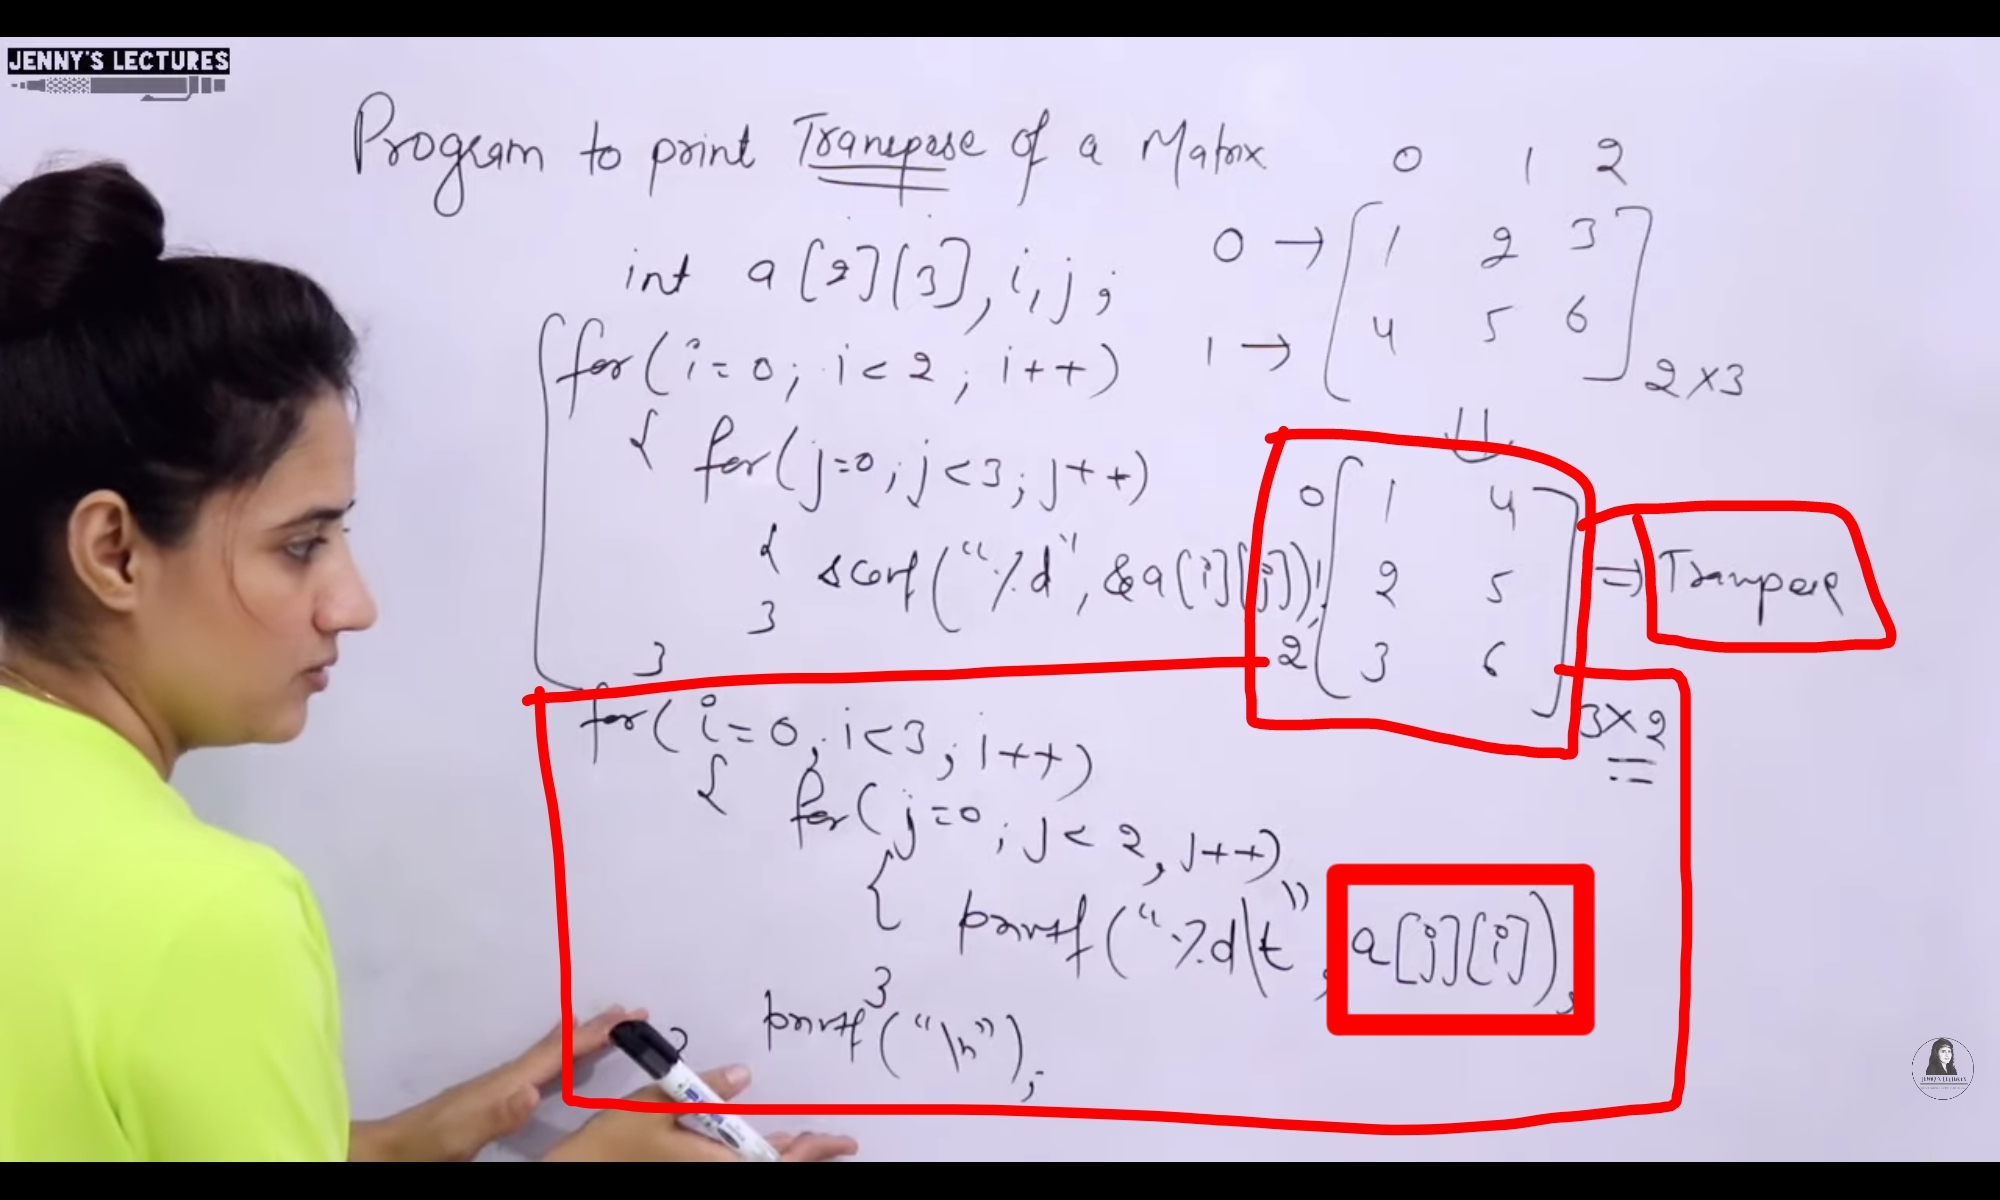 JENNY'S LECTURES
Program to print Transpose of a Matrix
int a[2][3], i, j;
for(i=0; i<2; i++)
{ for(j=0; j<3; j++)
{ scanf("%d", &a[i][j]);
}
}
for(i=0; i<3; i++)
{ for(j=0; j<2; j++)
{ printf("%d\t", a[j][i]);
}
printf("\n");
}
0 1 2
0 → 1 2 3
1 → 4 5 6
2×3
⇓
0 1 4
2 5
2 3 6
3×2
⇒ Transpose